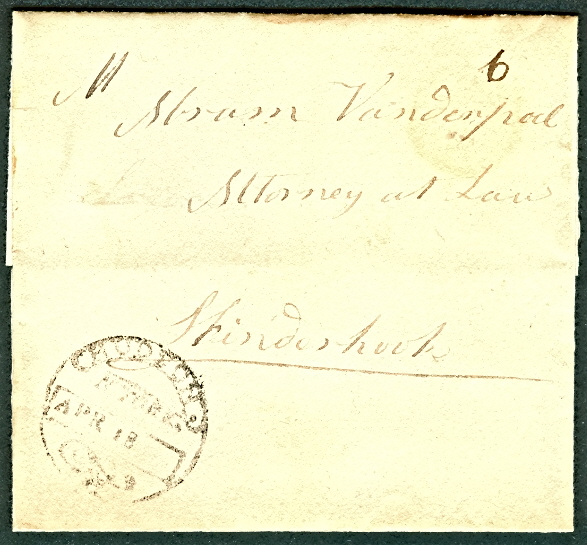 6
M
Abram Vanderpoel
Attorney at Law
Kinderhook
APR 18